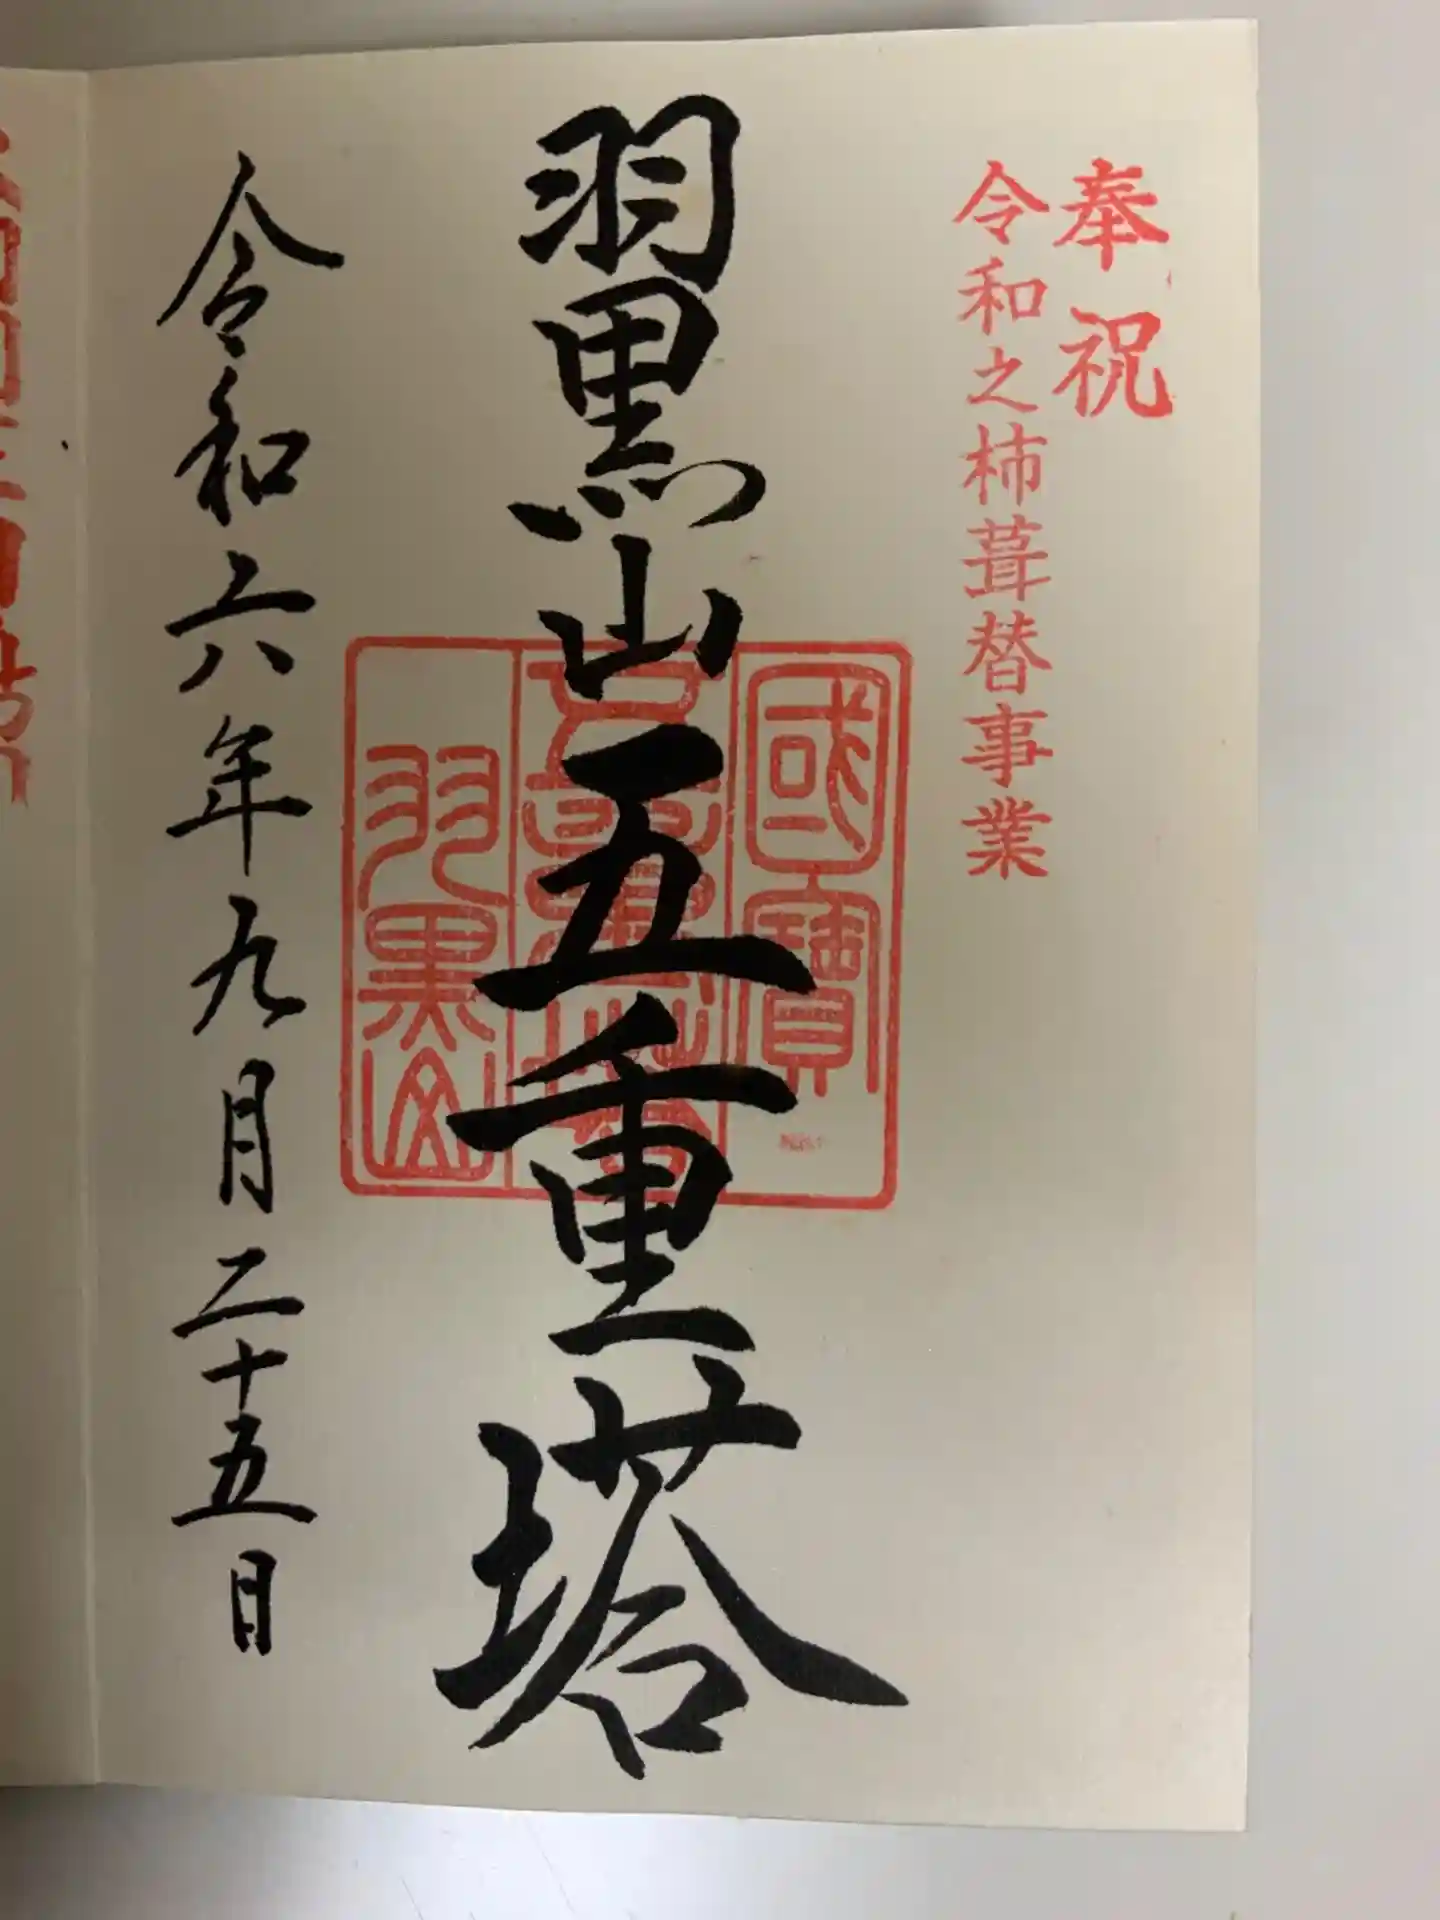 奉祝
令和之杮葺替事業
羽黒山五重塔
國寶
羽黒山
令和六年九月二十五日